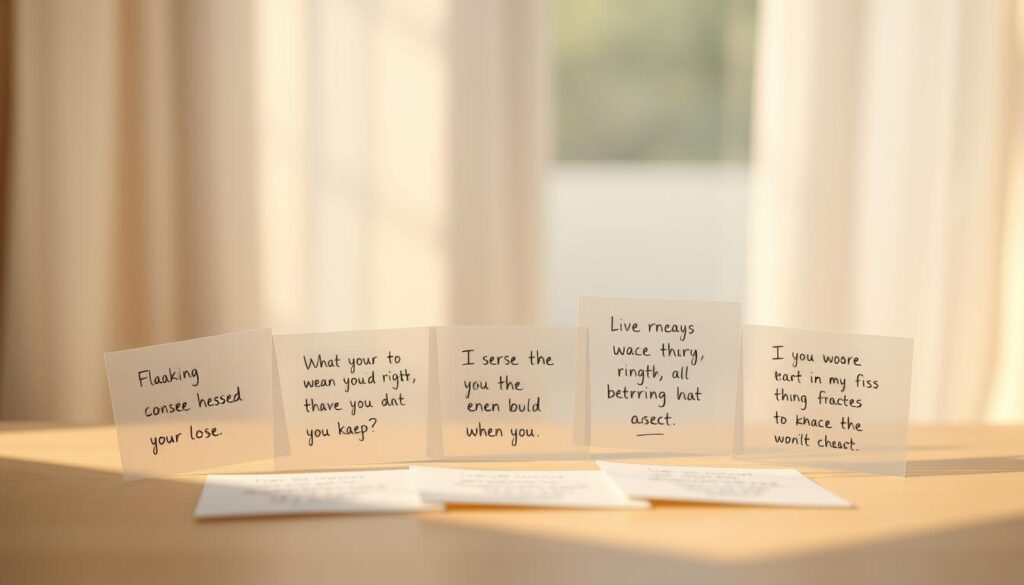 Flaaking
consee hessed
your lose.
What your to
wean you'd right,
thave you dat
you kaep?
I serse the
you the
enen buld
when you.
Live rneays
wace thiry,
ringth, all
betrring hat
asect.
I you woore
tart in my fiss
thing fractes
to knace the
won'lt chesct.